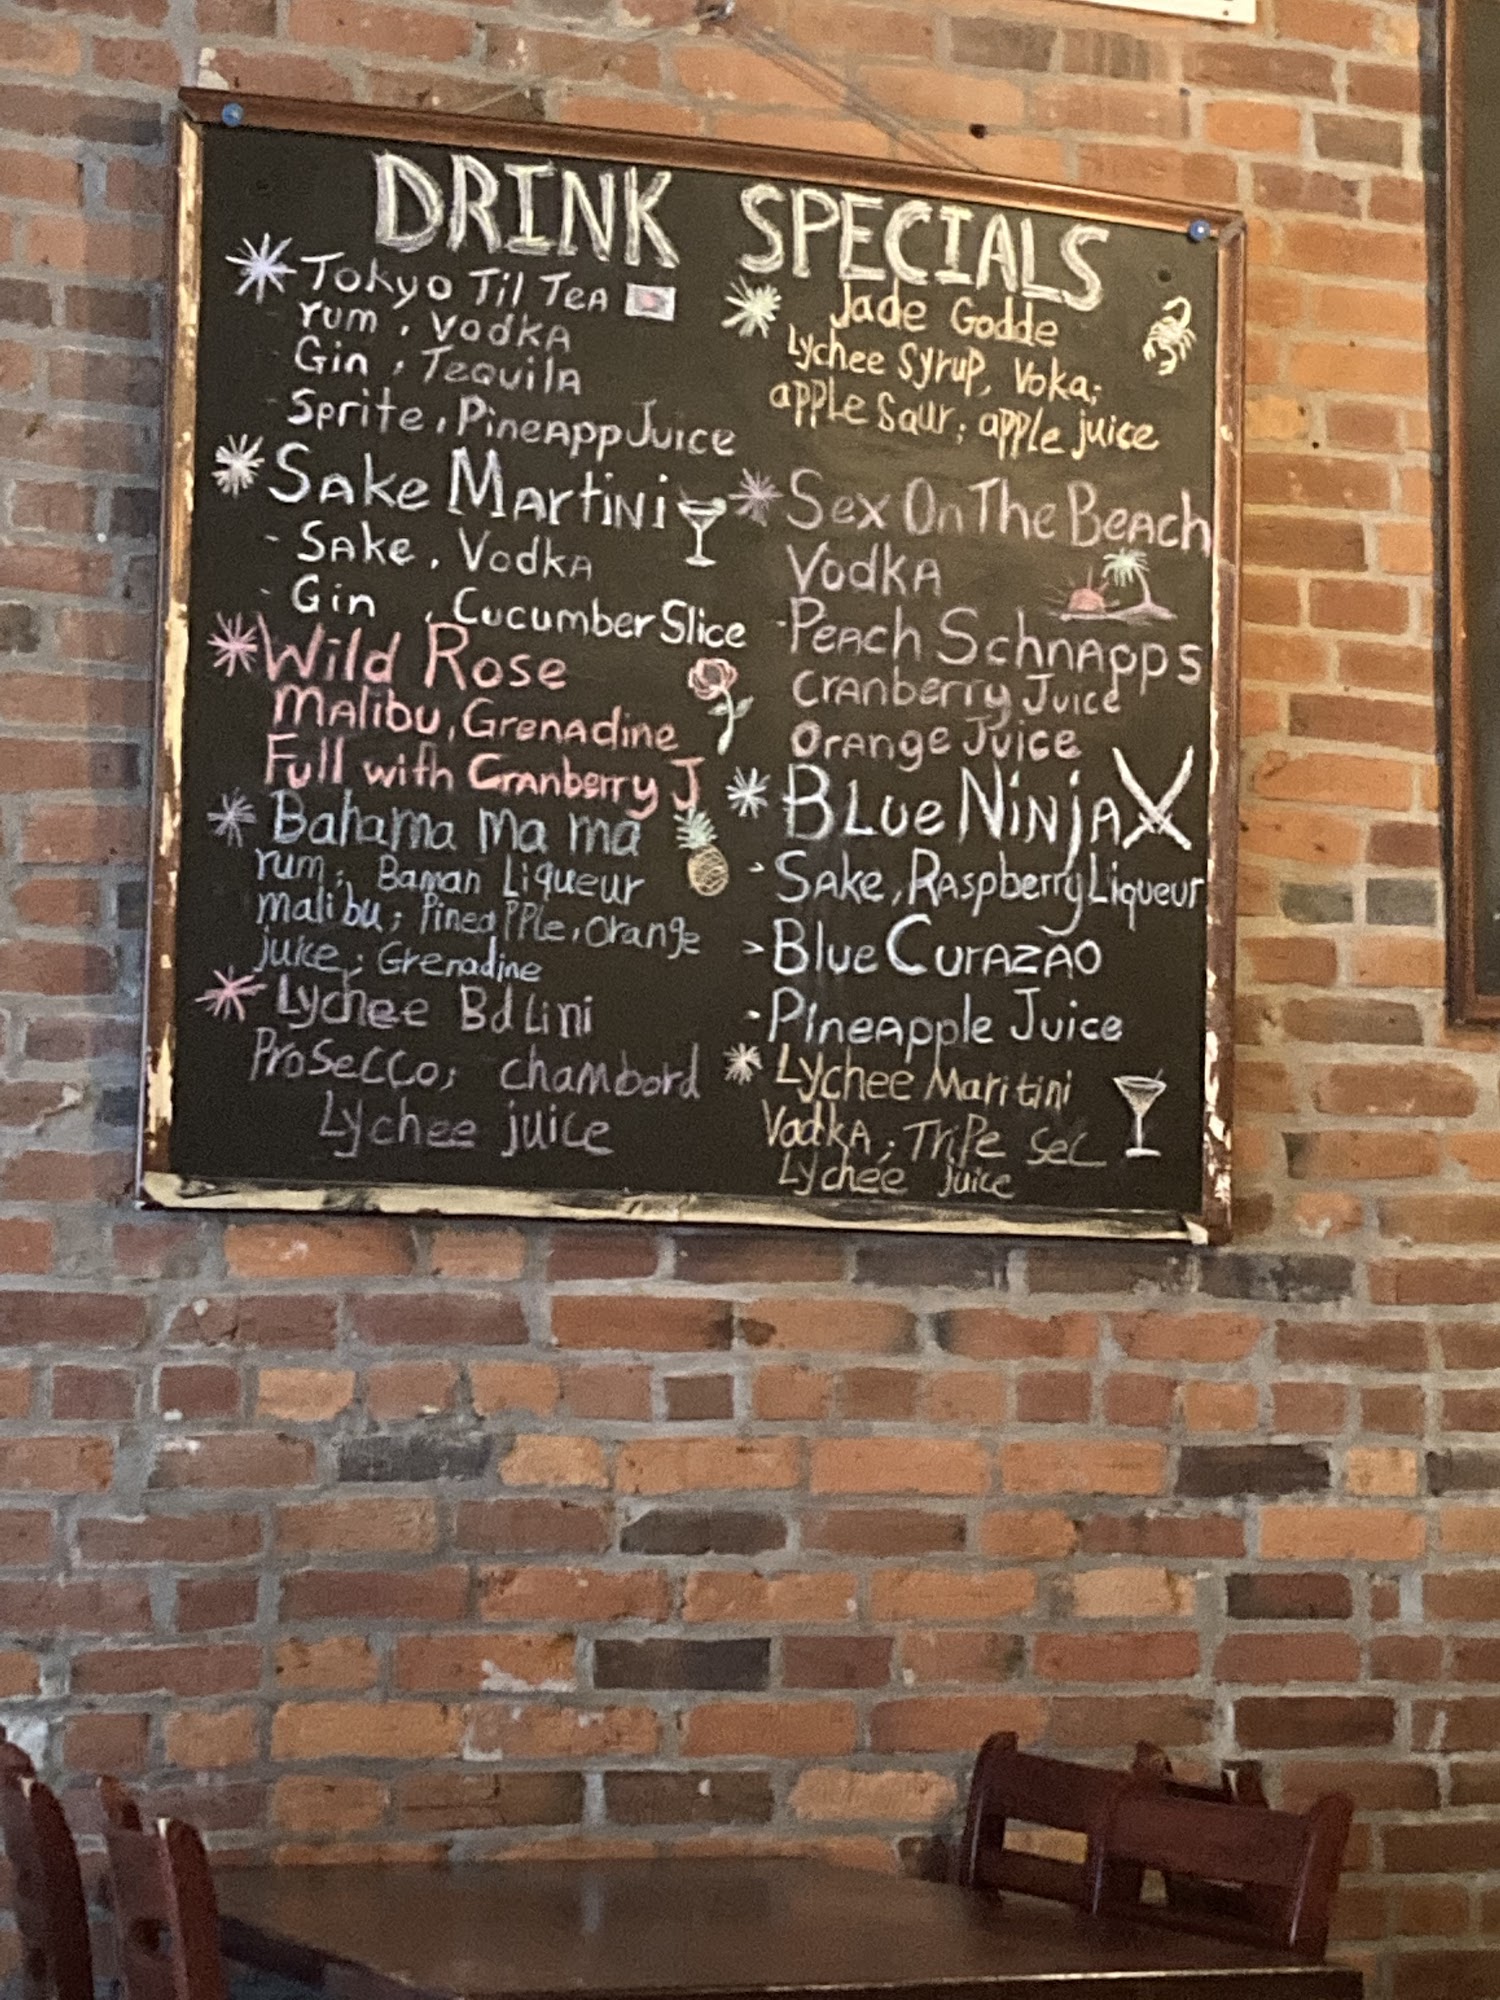 DRINK SPECIALS
Tokyo Til Tea
rum, Vodka
Gin, Tequila
Sprite, PineAppJuice
Sake Martini
- Sake, Vodka
- Gin, Cucumber Slice
Wild Rose
Malibu, Grenadine
Full with Cranberry J
Bahama Ma ma
rum; Banan Liqueur
malibu; PineaPPle, Orange
juice; Grenadine
Lychee BdLini
Prosecco; chambord
Lychee juice
Jade Godde
Lychee Syrup, Voka;
apple Saur; apple juice
Sex On The Beach
Vodka
- Peach Schnapps
Cranberry Juice
Orange Juice
Blue Ninja
- Sake, Raspberry Liqueur
> Blue Curazao
- Pineapple Juice
Lychee Maritini
Vodka; TriPe Sec
Lychee juice